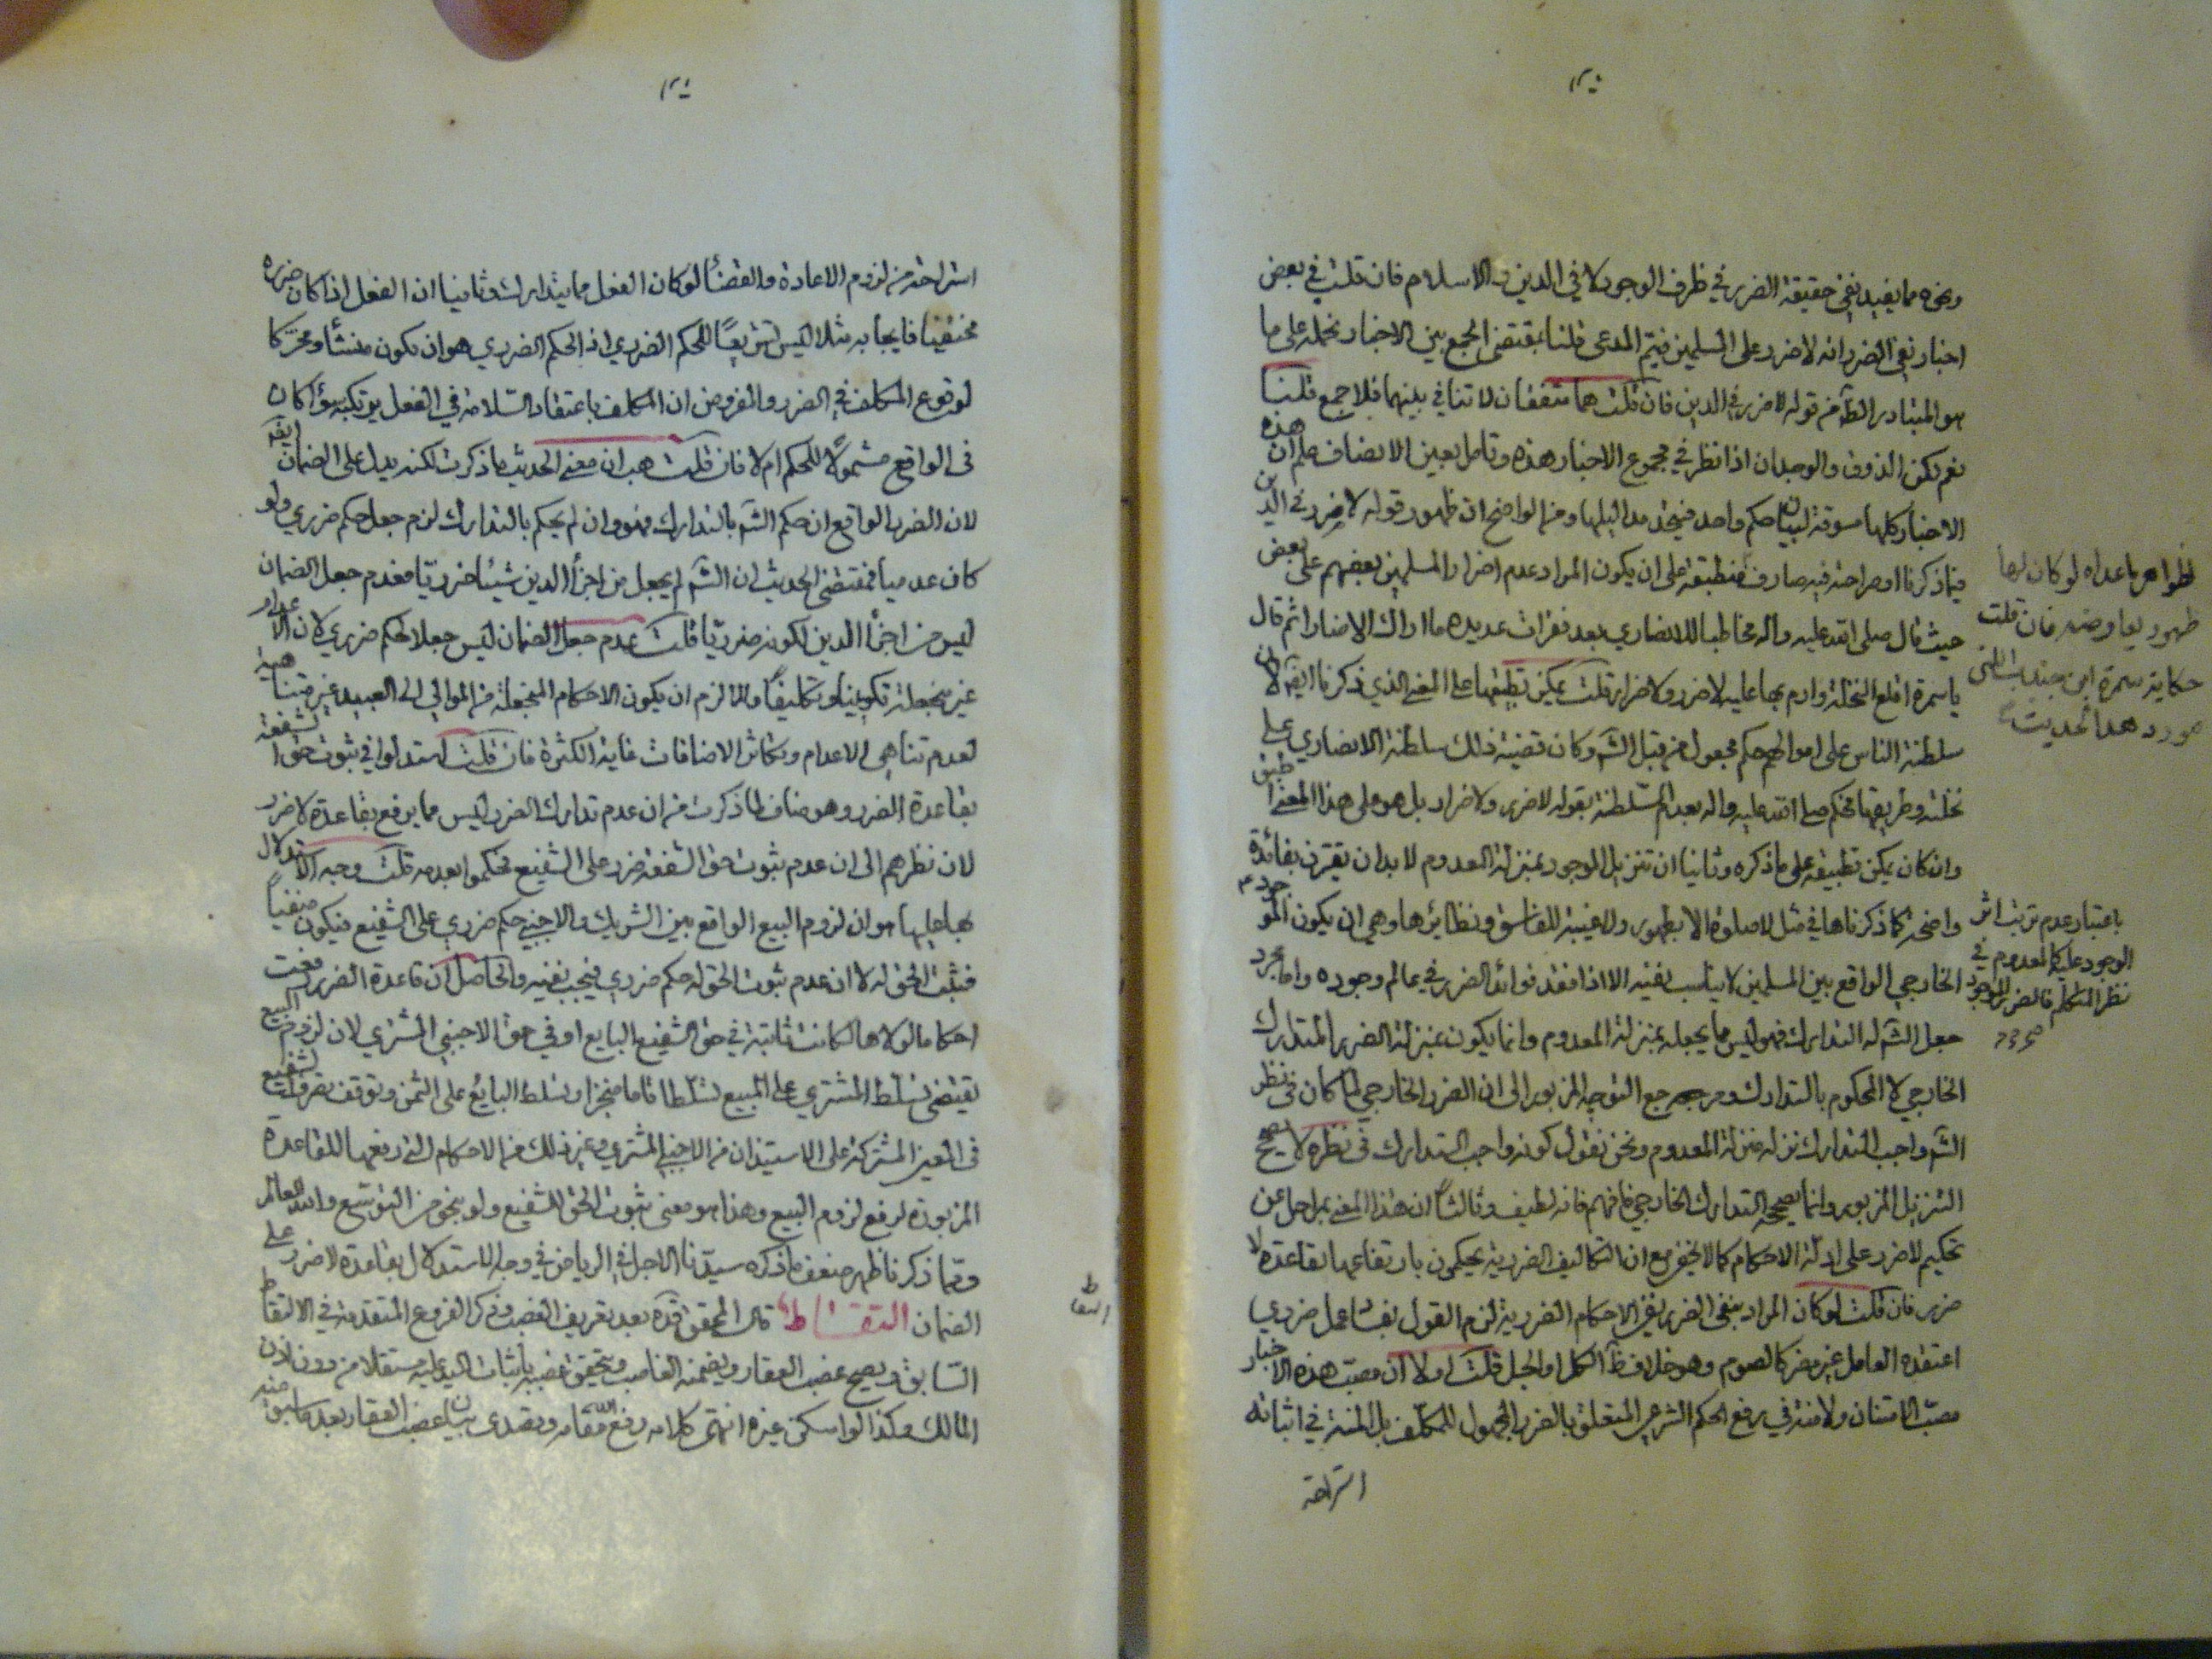 ونحوه مما يفيد نفي حقيقة الضرر في ظرف الوجود لا في الدين والاسلام فان قلت في بعض
اخبار نفي الضرر انه لا ضرر على المسلمين فيتم المدعى قلنا بمقتضى الجمع بين الاخبار نحمله على ما
هو المتبادر الظ من قوله لا ضرر في الدين فان قلت هما متفقان لا تنافي بينهما فلا جمع قلنا
نعم لكن الذوق والوجدان اذا نظر في مجموع الاخبار هذه وتامل بعين الانصاف علم ان هذه
الاخبار كلها مسوقة لبيان حكم واحد فيتحد مداليلها ومن الواضح ان ظهور قوله لا ضرر في الدين
فيما ذكرنا او صراحته فيه صارف فنطبقه على ان يكون المراد عدم اضرار المسلمين بعضهم على بعض
حيث قال صلى الله عليه واله مخاطبا للانصاري بعد فقرات عديده ما اراك الا مضارا ثم قال
يا سمرة اقلع النخلة وارم بها عليه لا ضرر ولا ضرار قلت يمكن تطبيقها على المعنى الذي ذكرنا ايضا لان
سلطنة الناس على اموالهم حكم مجعول من قبل الش وكان قضية ذلك سلطنة الانصاري على
نخلته وطريقها فحكم صلى الله عليه واله بعدم السلطنة بقوله لا ضرر ولا ضرار بل هو على هذا المعنى اطبق
وان كان يمكن تطبيقه على ما ذكره وثانيا ان تنزيل الموجود بمنزلة المعدوم لا بد ان يقترن بفائدة
واضحة كما ذكرناها في مثل لا صلوة الا بطهور ولا غيبة للفاسق ونظائرها وهي ان يكون الموجود
الخارجي الواقع بين المسلمين لا يناسب نفيه الا اذا فقد فوائد الضرر في عالم وجوده واما مجرد
جعل الش له التدارك فهو ليس مما يجعله بمنزلة المعدوم وانما يكون بمنزلة الضرر المتدارك
الخارجي لا المحكوم بالتدارك ومرجع التوجيه المزبور الى ان الضرر الخارجي لما كان في نظر
الش واجب التدارك نزله منزلة المعدوم ونحن نقول كونه واجب التدارك في نظره لا يصحح
التنزيل المزبور وانما يصححه التدارك الخارجي فافهم فانه لطيف وثالثا ان هذا المعنى بمراحل عن
تحكيم لا ضرر على ادلة الاحكام كما لا يخفى مع ان التكاليف الضررية يحكمون بارتفاعها بقاعدة لا
ضرر فان قلت لو كان المراد بنفي الضرر نفي الاحكام الضررية لزم القول بفساد عمل ضرري
اعتقده العامل غير مضر كالصوم وهو خلاف ظ الكل او الجل قلت اولا ان مصب هذه الاخبار
مصب الامتنان ولا منة في رفع الحكم الشرعي المتعلق بالضرر المجهول للمكلف بل المنة في اثباته
استراحة
لظواهر ما عداه لو كان لها
ظهور يعارضه فان قلت
حكاية سمرة ابن جندب اللتي
مورد هذا الحديث
باعتبار عدم ترتب اثر
الوجود عليه كالمعدوم في
نظر المتكلم فالضرر الموجود
استراحة من لزوم الاعادة والقضاء لو كان الفعل مما يتدارك وثانيا ان الفعل اذا كان ضرره
مختفيا فايجابه مثلا ليس تشريعا للحكم الضرري اذ الحكم الضرري هو ان يكون منشأ ومحركا
لوقوع المكلف في الضرر والمفروض ان المكلف باعتقاد السلامة في الفعل يرتكبه سواء كان
في الواقع مشمولا للحكم ام لا فان قلت هب ان معنى الحديث ما ذكرت لكنه يدل على الضمان ايضا
لان الضرر الواقع ان حكم الش بالتدارك فهو وان لم يحكم بالتدارك لزم جعل حكم ضرري ولو
كان عدميا فمقتضى الحديث ان الش لم يجعل من اجزاء الدين شيئا ضرريا فعدم جعل الضمان
ليس من اجزاء الدين لكونه ضرريا قلت عدم جعل الضمان ليس جعلا لحكم ضرري لان الاعدام
غير منجعلة تكوينا وتكليفا والا لزم ان يكون الاحكام المنجعلة من الموالي الى العبيد غير متناهية
لعدم تناهي الاعدام وتكاثر الاضافات غاية الكثرة فان قلت استدلوا في ثبوت حق الشفعة
بقاعدة الضرر وهو مناف لما ذكرت من ان عدم تدارك الضرر ليس مما يرفع بقاعدة لا ضرر
لان نظرهم الى ان عدم ثبوت حق الشفعة ضرر على الشفيع فحكموا بعدمه قلت وجه الاستدلال
بها عليها هو ان لزوم البيع الواقع بين الشريك والاجنبي حكم ضرري على الشفيع فيكون منفيا
فيثبت الحق له لا ان عدم ثبوت الحق له حكم ضرري فيجب نفيه والحاصل ان قاعدة الضرر رفعت
احكاما لولاها لكانت ثابتة في حق الشفيع البايع او في حق الاجنبي المشتري لان لزوم البيع
يقتضي تسلط المشتري على المبيع تسلطا تاما منجزا وتسلط البايع على الثمن وتوقف تصرفات الشفيع
في العين المشتركة على الاستيذان من الاجنبي المشتري وغير ذلك من الاحكام التي رفعها للقاعدة
المزبورة لرفع لزوم البيع وهذا هو معنى ثبوت الحق للشفيع ولو بنحو من التوسع والله العالم
ومما ذكرنا ظهر ضعف ما ذكره سيدنا الاجل في الرياض في وجه الاستدلال بقاعدة لا ضرر على
الضمان التقاط قال المحقق قده بعد تعريف الغصب وذكر الفروع المتقدمة في الالتقاط
السابق ويصح غصب العقار ويضمنه الغاصب ويتحقق غصبه باثبات اليد عليه مستقلا من دون اذن
المالك وكذا لو اسكن غيره انتهى كلامه رفع الله مقامه وتصدى بيان غصب العقار بعد ما سبق منه
التقاط